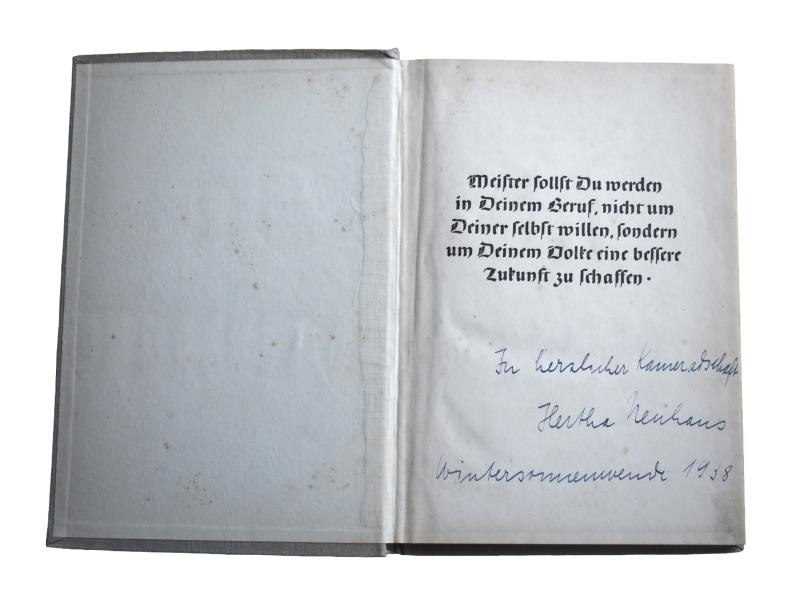 Meister sollst Du werden
in Deinem Beruf, nicht um
Deiner selbst willen, sondern
um Deinem Volke eine bessere
Zukunft zu schaffen.
In herzlicher Kameradschaft
Hertha Neuhaus
Wintersonnenwende 1938